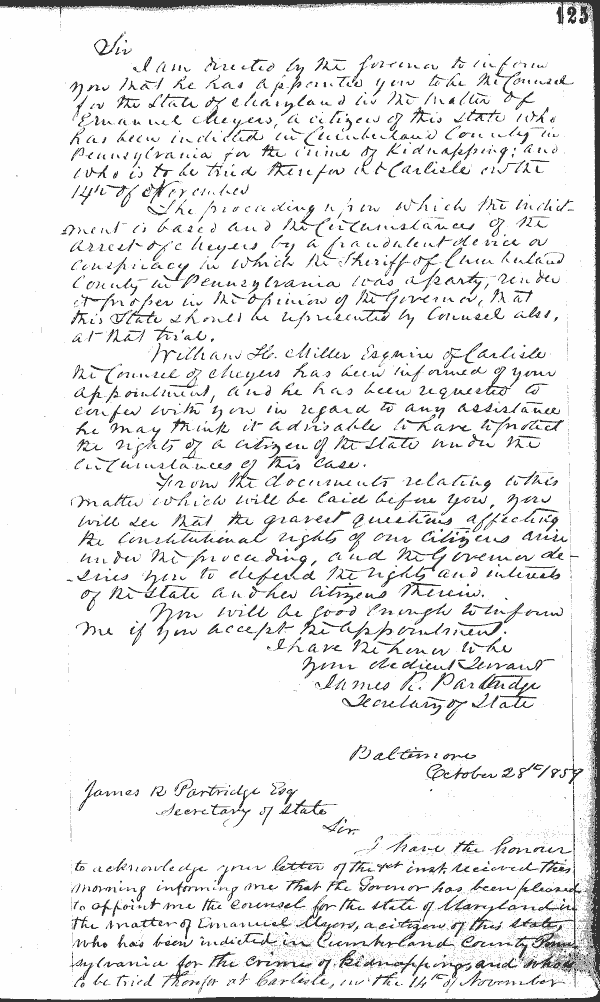 125
Sir
I am directed by the Governor to inform
you that he has appointed you to be the Counsel
for the State of Maryland in the matter of
Emanuel Meyers, a citizen of this State who
has been indicted in Cumberland County in
Pennsylvania for the crime of kidnapping; and
who is to be tried therefor at Carlisle on the
14th of November
The proceeding upon which the indict-
ment is based and the Circumstances of the
arrest of Meyers by a fraudulent device or
conspiracy in which the Sheriff of Cumberland
County in Pennsylvania was a party, render
it proper in the opinion of the Governor, that
this State should be represented by Counsel also,
at that trial.
William H. Miller Esquire of Carlisle
the Counsel of Meyers has been informed of your
appointment, and he has been requested to
confer with you in regard to any assistance
he may think it advisable to have to protect
the rights of a citizen of the State under the
circumstances of this case.
From the documents relating to this
matter which will be laid before you, you
will see that the gravest questions affecting
the constitutional rights of our citizens arise
under the proceeding, and the Governor de-
sires you to defend the rights and interests
of the State and her citizens therein.
You will be good enough to inform
me if you accept the appointment.
I have the honor to be
Your obedient Servant
James R. Partridge
Secretary of State
Baltimore
October 28th 1859
James R Partridge Esq
Secretary of State
Sir
I have the honour
to acknowledge your letter of the inst. recieved this
morning informing me that the Govenor has been pleased
to appoint me the counsel for the state of Maryland in
the matter of Emanuel Myers, a citizen of this state,
who has been indicted in Cumberland County Penn
sylvania for the crime of kidnapping, and who is
to be tried therefor at Carlisle, on the 14th of November